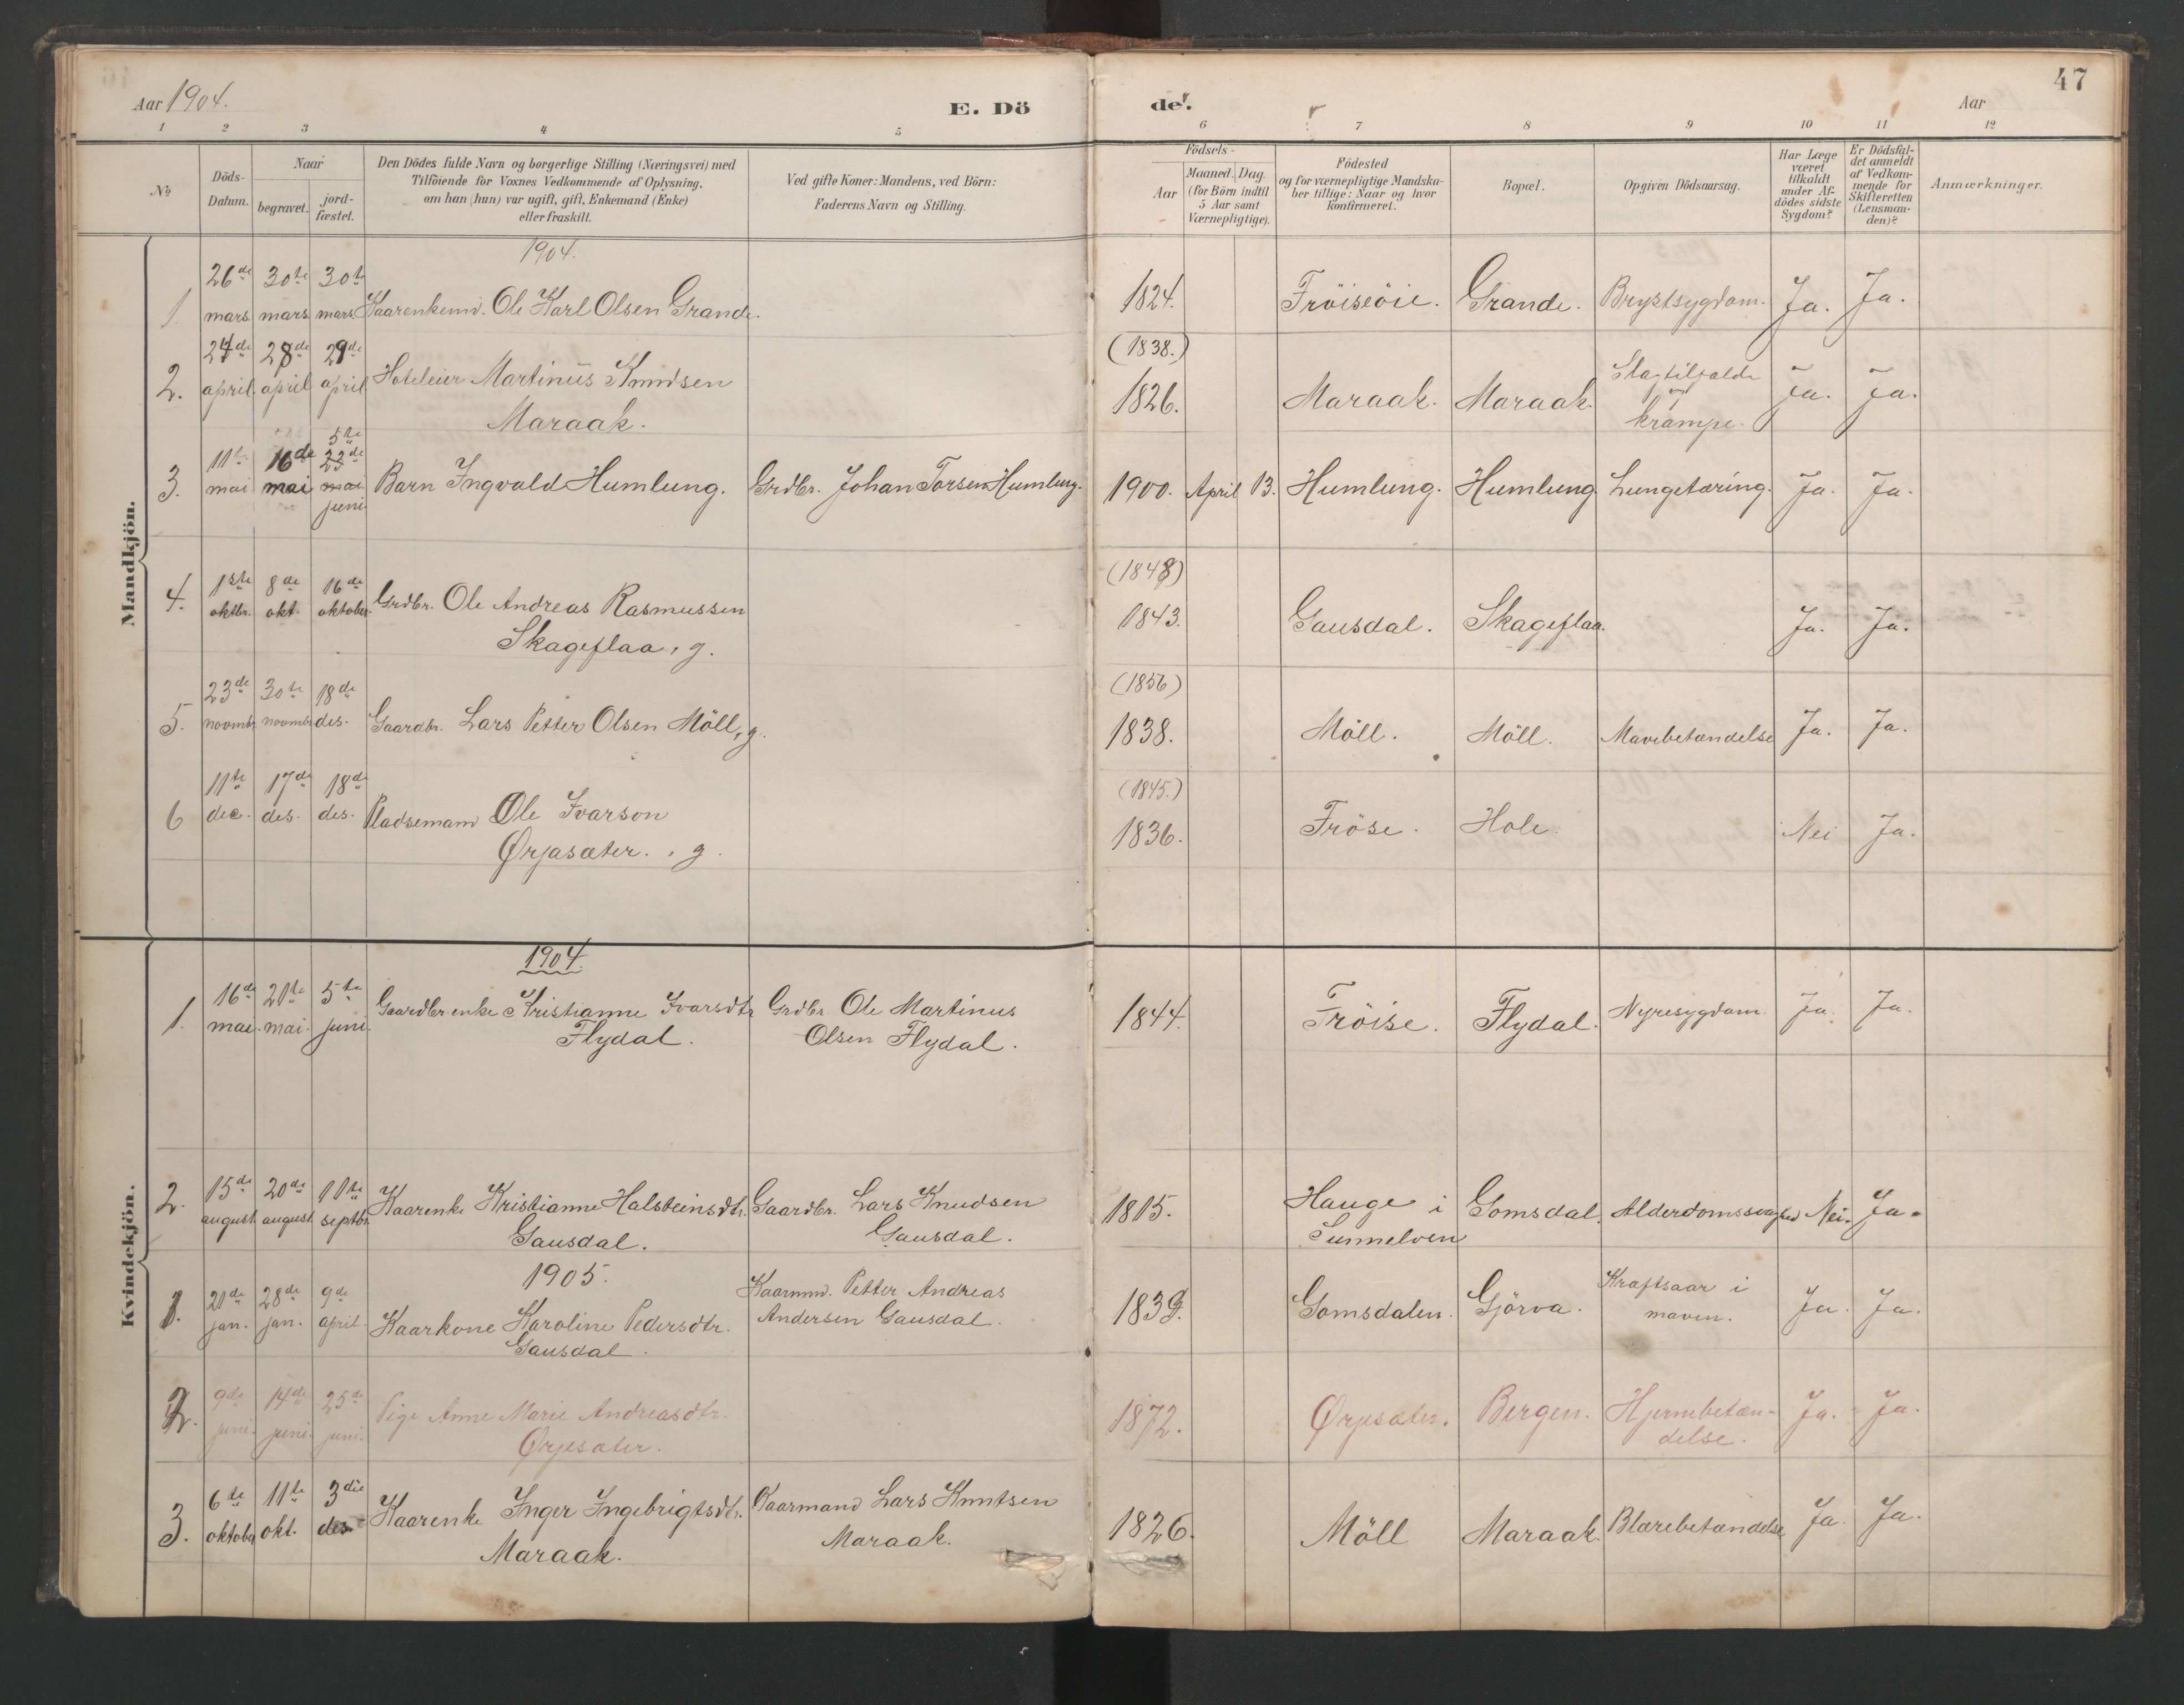 47
Aar 1904.
E. Dö
de.
Aar
1 2 3 4 5 6 7 8 9 10 11 12
No
Döds-
Datum.
Naar
begravet.
jord-
fæstet.
Den Dödes fulde Navn og borgerlige Stilling (Næringsvei) med
Tilföiende for Voxnes Vedkommende af Oplysning,
om han (hun) var ugift, gift, Enkemand (Enke)
eller fraskilt.
Ved gifte Koner: Mandens, ved Börn:
Faderens Navn og Stilling.
Födsels-
Aar
Maaned. Dag.
(for Börn indtil
5 Aar samt
Værnepligtige).
Födested
og for værnepligtige Mandska-
ber tillige: Naar og hvor
konfirmeret.
Bopæl.
Opgiven Dödsaarsag.
Har Læge
været
tilkaldt
under Af-
dödes sidste
Sygdom?
Er Dödsfal-
det anmeldt
af Vedkom-
mende for
Skifteretten
(Lensman-
den)?
Anmærkninger.
Mandkjön.
1904.
26de 30te 30te
1. mars mars. mars. Kaarenkemd. Ole Karl Olsen Grande. 1824. Fröiseöie. Grande. Brystsygdom. Ja. Ja.
27de 28de 29de (1838.)
2. april. april april Hoteleier Martinus Knudsen
Maraak. 1826. Maraak. Maraak. Slagtilfælde
krampe. Ja. Ja.
5te
11te 16de 23de
3. mai mai mai Barn Ingvald Humlung. Grdbr. Johan Torsen Humlung. 1900. April 13. Humlung. Humlung. Lungetæring. Ja. Ja.
juni
1ste 8de 16de (1848)
4. oktbr. okt. oktober. Grdbr. Ole Andreas Rasmussen
Skageflaa, g. 1843. Gausdal. Skageflaa. Ja. Ja.
23de 30te 18de (1856)
5. novmbr novmbr des. Gaardbr. Lars Petter Olsen Möll, g. 1838. Möll. Möll. Mavebetændelse Ja. Ja.
11te 17de 18de (1845.)
6 dec. des. des. Pladsemand Ole Ivarson
Ørjasæter., g. 1836. Fröse. Hole. Nei Ja.
Kvindekjön.
1904.
16de 21te 5te
1. mai. mai. juni. Gaardbrenke Kristianne Ivarsdtr
Flydal. Grdbr Ole Martinus
Olsen Flydal. 1844. Fröise. Flydal. Nyresygdom. Ja. Ja.
15de 20de 11te
2. august august septbr. Kaarenke Kristianne Halsteinsdtr.
Gausdal. Gaardbr. Lars Knudsen
Gausdal. 1815. Hauge i
Sunnelven Gomsdal. Alderdomssvaghed Nei. Ja.
1905.
21de 28de 9de
1. jan. jan. april. Kaarkone Karoline Pedersdtr.
Gausdal. Kaarmd. Petter Andreas
Andersen Gausdal. 1839. Gomsdalen. Gjörva. Kræftsaar i
maven. Ja. Ja.
9de 14de 25de
2. juni. juni. juni. Pige Anne Marie Andreasdtr.
Ørjesæter. 1872. Ørjesæter. Bergen. Hjernebetæn-
delse. Ja. Ja.
6te 11te 3die
3. oktober okt. des. Kaarenke Inger Ingebrigtsdtr.
Maraak. Kaarmand Lars Knutsen
Maraak. 1826. Möll Maraak. Blærebetændelse Ja. Ja.